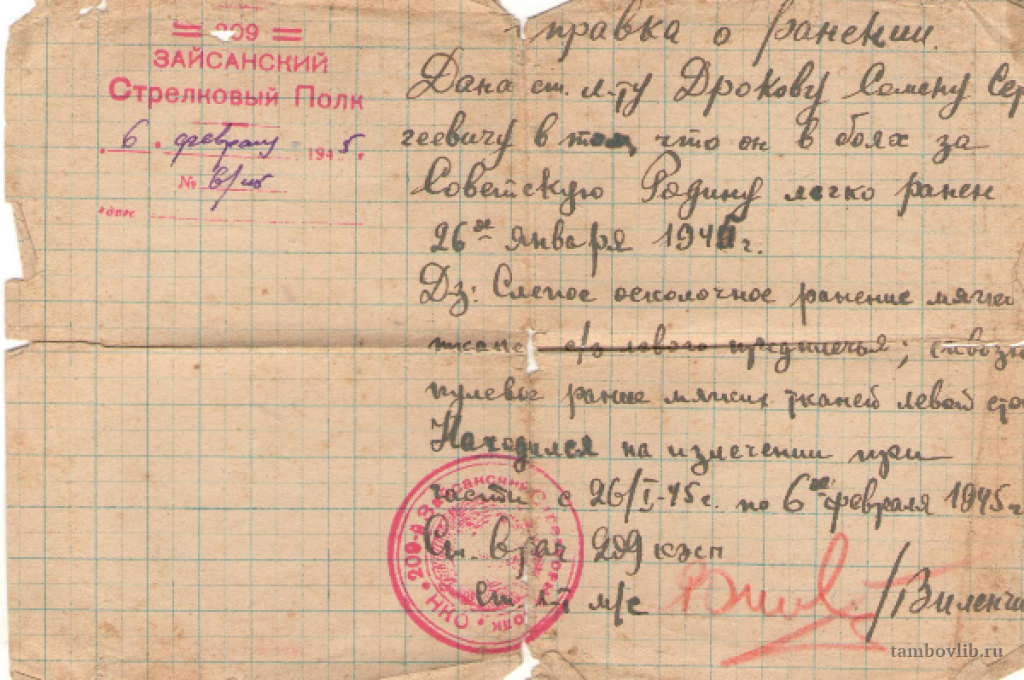 = 209 =
ЗАЙСАНСКИЙ
Стрелковый Полк
"6" февраля 1945 г.
№ б/н
адрес
Справка о ранении.
Дана ст. л-ту Дрокову Семену Сер
геевичу в том, что он в боях за
Советскую Родину легко ранен
26го января 1945 г.
Дз: Слепое осколочное ранение мягки
ткане в/з левого предплечья; сквозн
пулевое ранение мягких тканей левой сто
Находился на излечении при
части с 26/I-45 г. по 6е февраля 1945 г
Ст. врач 209 кзсп
ст. л-т м/с /Виленчи
209-й Зайсанский Стрелковый полк
tambovlib.ru